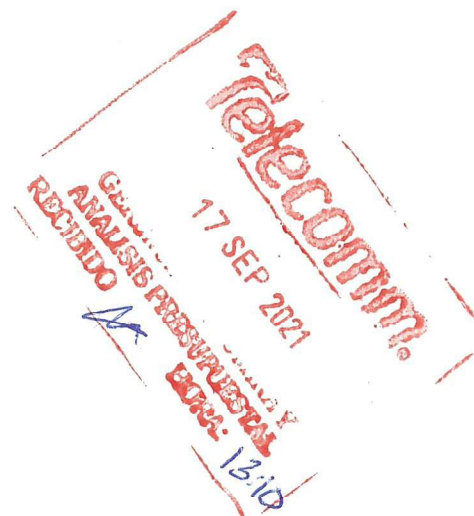 Telecomm.
17 SEP 2021
ANALISIS PRESUPUESTAL
RECIBIDO
HORA.
13:10